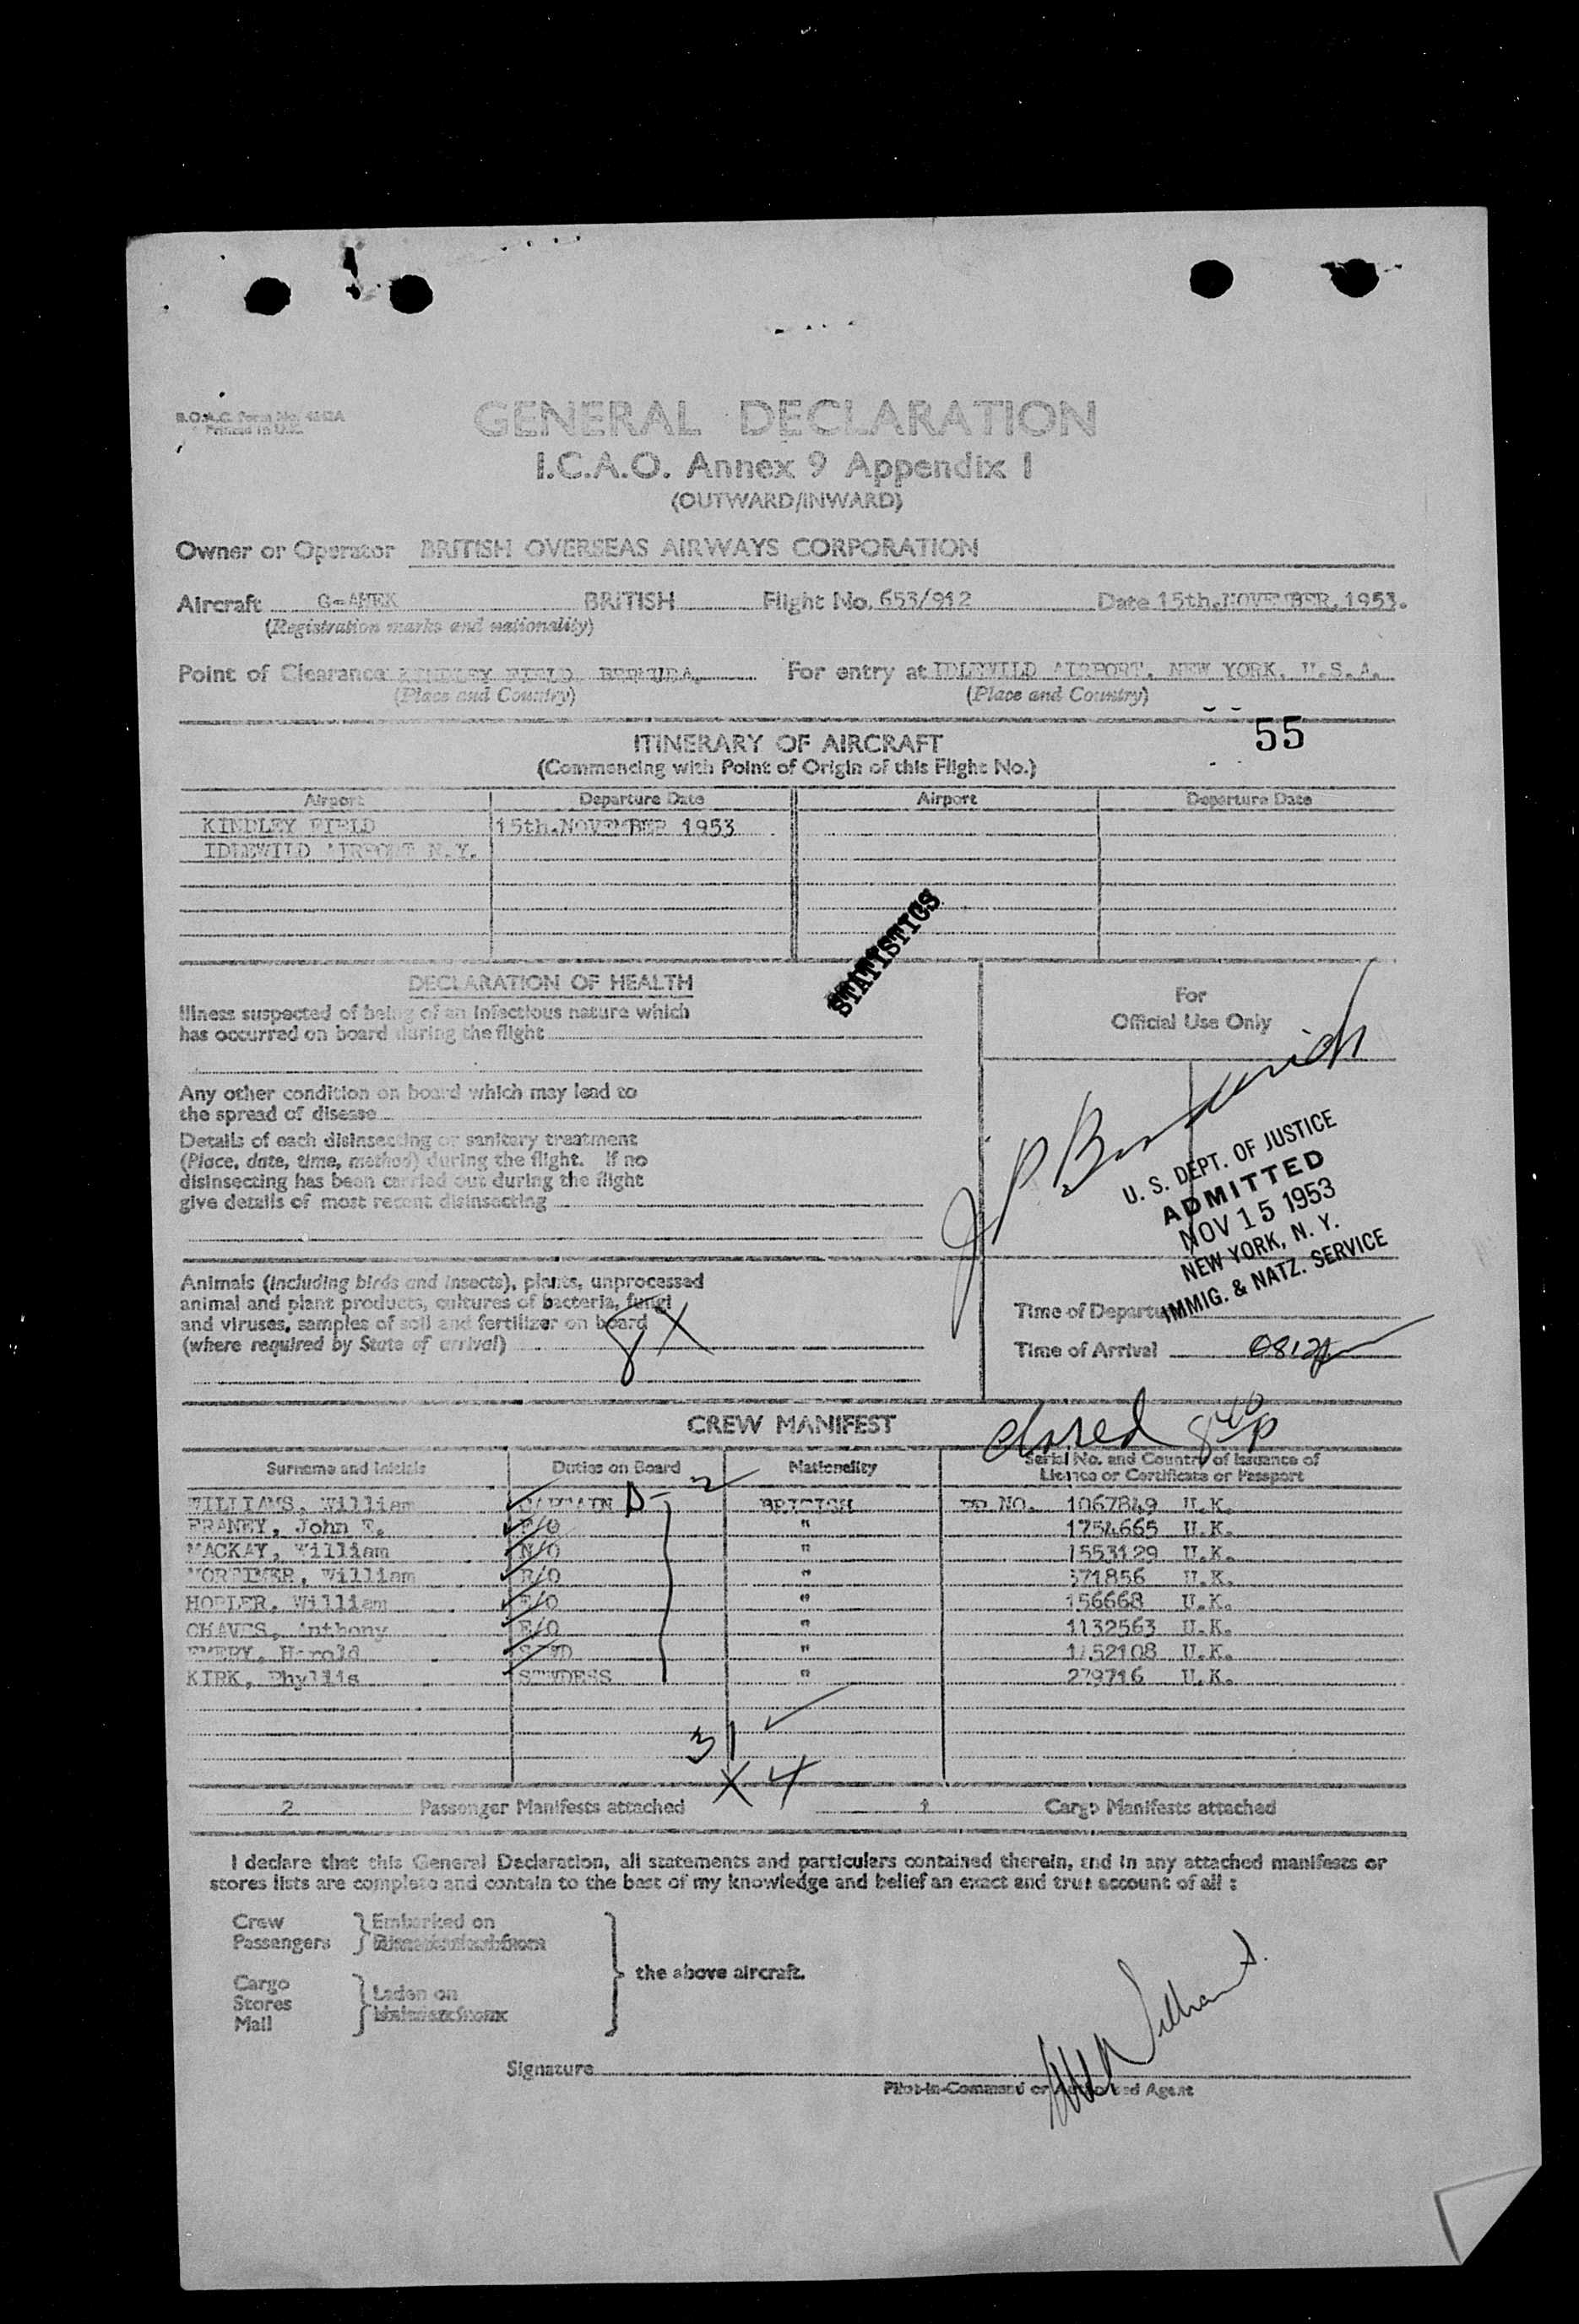 B.O.A.C. Form No.
Printed in U.K.
GENERAL DECLARATION
I.C.A.O. Annex 9 Appendix I
(OUTWARD/INWARD)
Owner or Operator BRITISH OVERSEAS AIRWAYS CORPORATION
Aircraft BRITISH Flight No. 653/912 Date 15th.NOVEMBER.1953.
(Registration marks and nationality)
Point of Clearance KINDLEY FIELD BERMUDA. For entry at IDLEWILD AIRPORT. NEW YORK. U.S.A.
(Place and Country) (Place and Country)
55
ITINERARY OF AIRCRAFT
(Commencing with Point of Origin of this Flight No.)
Airport Departure Date Airport Departure Date
KINDLEY FIELD 15th.NOVEMBER 1953
IDLEWILD AIRPORT N.Y.
STATISTICS
DECLARATION OF HEALTH
Illness suspected of being of an infectious nature which
has occurred on board during the flight
Any other condition on board which may lead to
the spread of disease
Details of each disinsecting or sanitary treatment
(Place, date, time, method) during the flight. If no
disinsecting has been carried out during the flight
give details of most recent disinsecting
For
Official Use Only
U. S. DEPT. OF JUSTICE
ADMITTED
NOV 15 1953
NEW YORK, N. Y.
IMMIG. & NATZ. SERVICE
Animals (including birds and insects), plants, unprocessed
animal and plant products, cultures of bacteria, fungi
and viruses, samples of soil and fertilizer on board
(where required by State of arrival)
8X
Time of Departure
Time of Arrival
CREW MANIFEST
Surname and Initials Duties on Board Nationality Serial No. and Country of Issuance of
Licence or Certificate or Passport
WILLIAMS, William CAPTAIN D-2 BRITISH PP.NO. 1067849 U.K.
FRANEY, John F/O " 1754665 U.K.
MACKAY, William N/O " 1553129 U.K.
MORTIMER, William R/O " 371856 U.K.
William E/O " 156668 U.K.
CHAVES, Anthony E/O " 1132563 U.K.
EMERY, Harold STWD " U.K.
KIRK, Phyllis STWDESS " 279716 U.K.
31
X 4
2 Passenger Manifests attached 1 Cargo Manifests attached
I declare that this General Declaration, all statements and particulars contained therein, and in any attached manifests or
stores lists are complete and contain to the best of my knowledge and belief an exact and true account of all :
Crew
Passengers
Embarked on
Cargo
Stores
Mail
Laden on
the above aircraft.
Signature
Pilot-in-Command or Authorised Agent